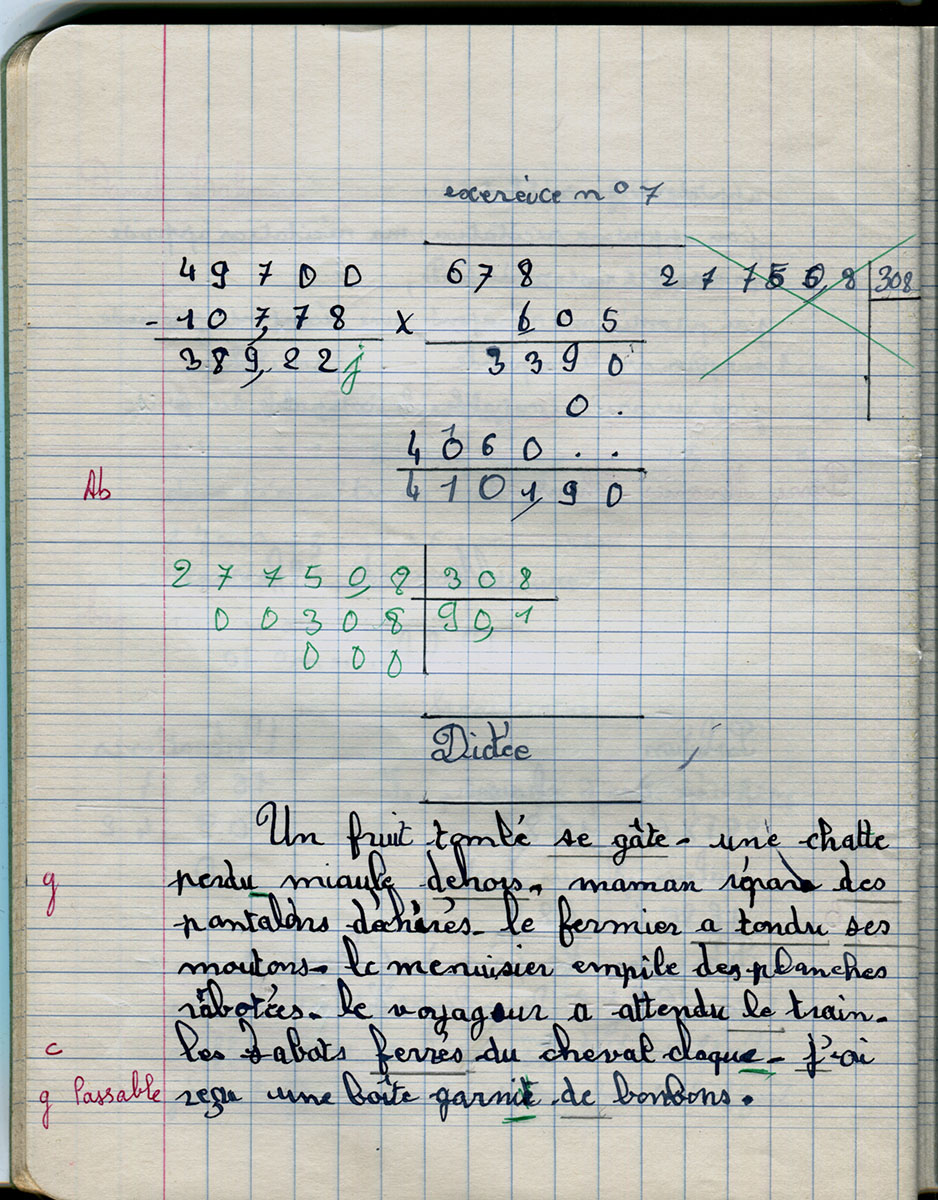 exercice n° 7
49700 678 277508 308
- 107,78 x 605
389,22 j 3390
0 .
4060 . .
Ab 410,190
27750,8 308
00308 90,1
000
Dictée
Un fruit tombé se gâte. une chatte
g perdu miaule dehors. maman répare des
pantalons déchirés. le fermier a tondu ses
moutons. le menuisier empile des planches
rabotées. le voyageur a attendu le train.
c les sabots ferrés du cheval claque. j'ai
g Passable reçu une boîte garnit de bonbons.